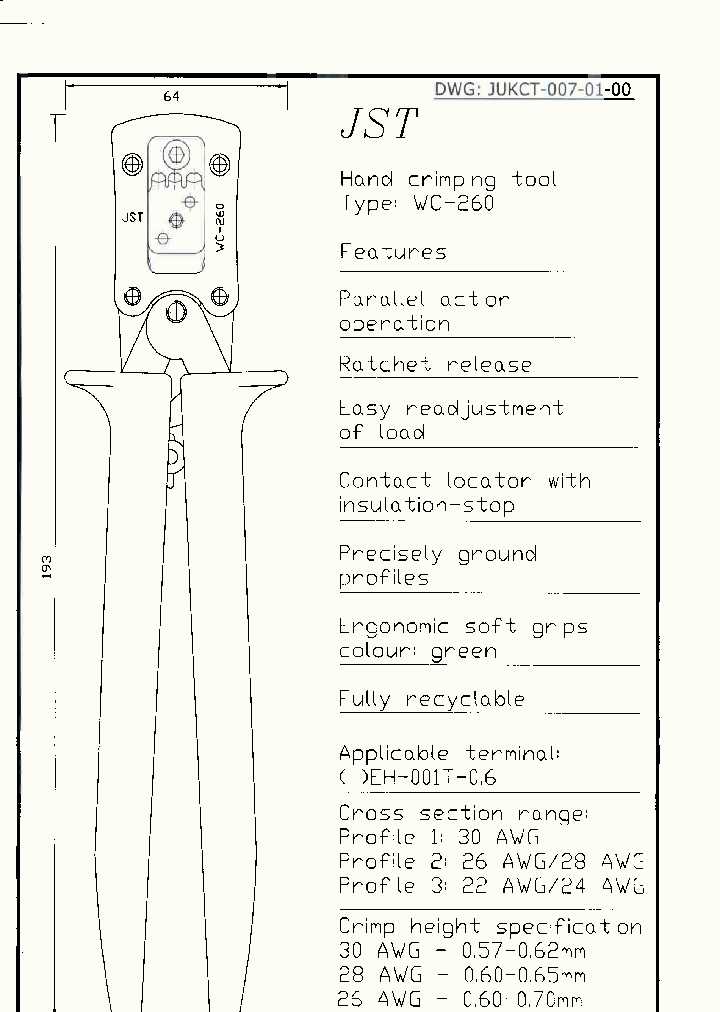 64
DWG: JUKCT-007-01-00
JST
Hand crimping tool
Type: WC-260
JST
WC-260
Features
Parallel action
operation
Ratchet release
Easy readjustment
of load
Contact locator with
insulation-stop
193
Precisely ground
profiles
Ergonomic soft grips
colour: green
Fully recyclable
Applicable terminal:
( )EH-001T-0.6
Cross section range:
Profile 1: 30 AWG
Profile 2: 26 AWG/28 AWG
Profile 3: 22 AWG/24 AWG
Crimp height specification
30 AWG - 0.57-0.62mm
28 AWG - 0.60-0.65mm
26 AWG - 0.60-0.70mm